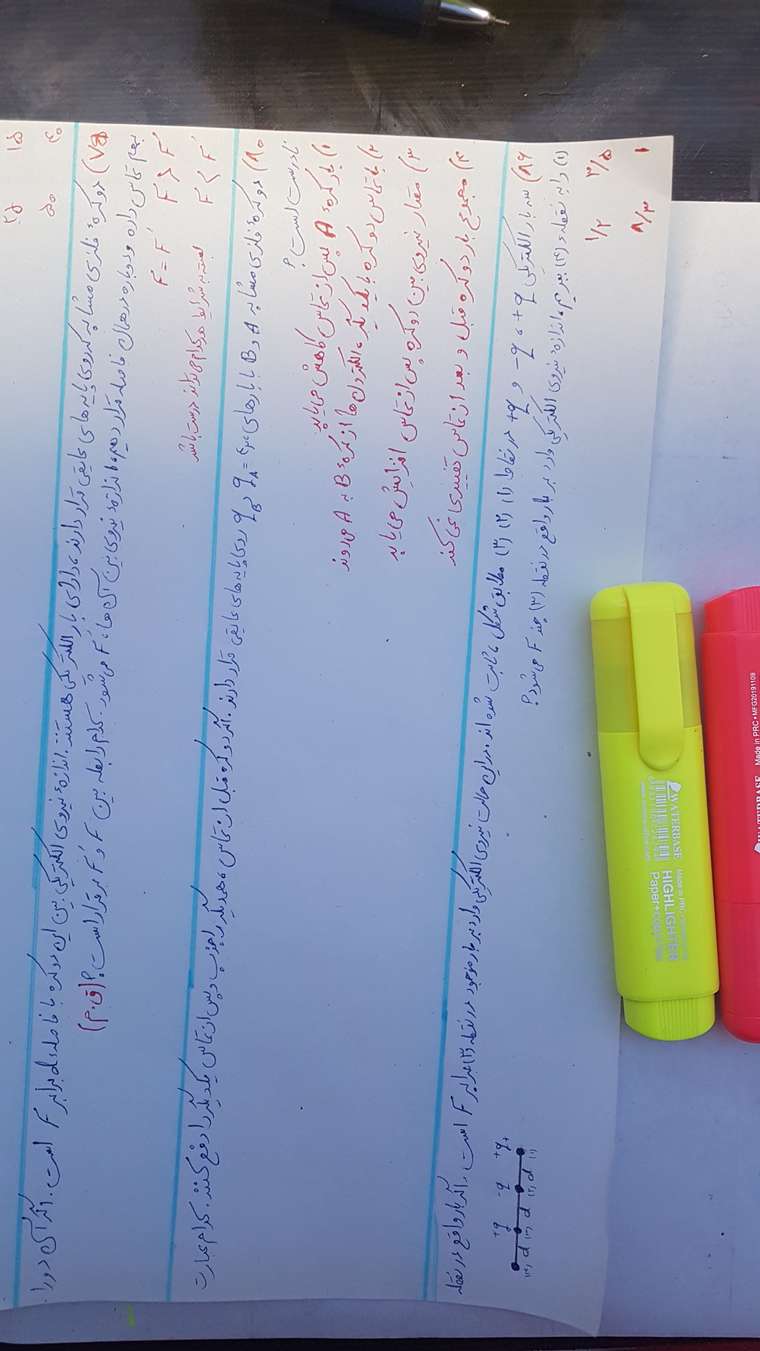 ۱۵ ۴۰
۲۵ ۵۰
(۷۵ دو کره‌ی فلزی مشابه که روی پایه‌های عایقی قرار دارند، دارای بار الکتریکی هستند. اندازه‌ی نیروی الکتریکی بین این دو کره با فاصله‌ی d برابر F است. اگر آن دو را
بهم تماس داده و دوباره در همان فاصله قرار دهیم، اندازه‌ی نیروی بین آن‌ها، F′ می‌شود. کدام رابطه بین F و F′ برقرار است؟ (ق.م)
F > F′ F < F′
F = F′ بسته به شرایط هر کدام می‌تواند درست باشد
(۸۰ دو کره‌ی فلزی مشابه A و B با بارهای qA = ۴μc و qB روی پایه‌های عایقی قرار دارند. اگر دو کره قبل از تماس، همدیگر را جذب و پس از تماس یکدیگر را دفع کنند. کدام عبارت
نادرست است؟
۱) بار کره‌ی A پس از تماس کاهش می‌یابد
۲) با تماس دو کره با یکدیگر، الکترون‌ها از کره‌ی B به A می‌روند
۳) مقدار نیروی بین دو کره پس از تماس افزایش می‌یابد
۴) مجموع بار دو کره قبل و بعد از تماس تغییری نمی‌کند
(۸۶ سه بار الکتریکی +q، -q و +q در نقاط (۱) (۲) (۳) مطابق شکل ثابت شده‌اند. در این حالت نیروی الکتریکی وارد بر بار موجود در نقطه (۳) برابر F است. اگر بار واقع در نقطه
(۱) را به نقطه‌ی (۴) ببریم، اندازه‌ی نیروی الکتریکی وارد بر بار واقع در نقطه (۳) چند F می‌شود؟
+q -q +q
d d d
(۴) (۳) (۲) (۱)
۳/۵ ۱
۱/۲ ۸/۳
WATERBASE
HIGHLIGHTER
Made in PRC • MFG20191109